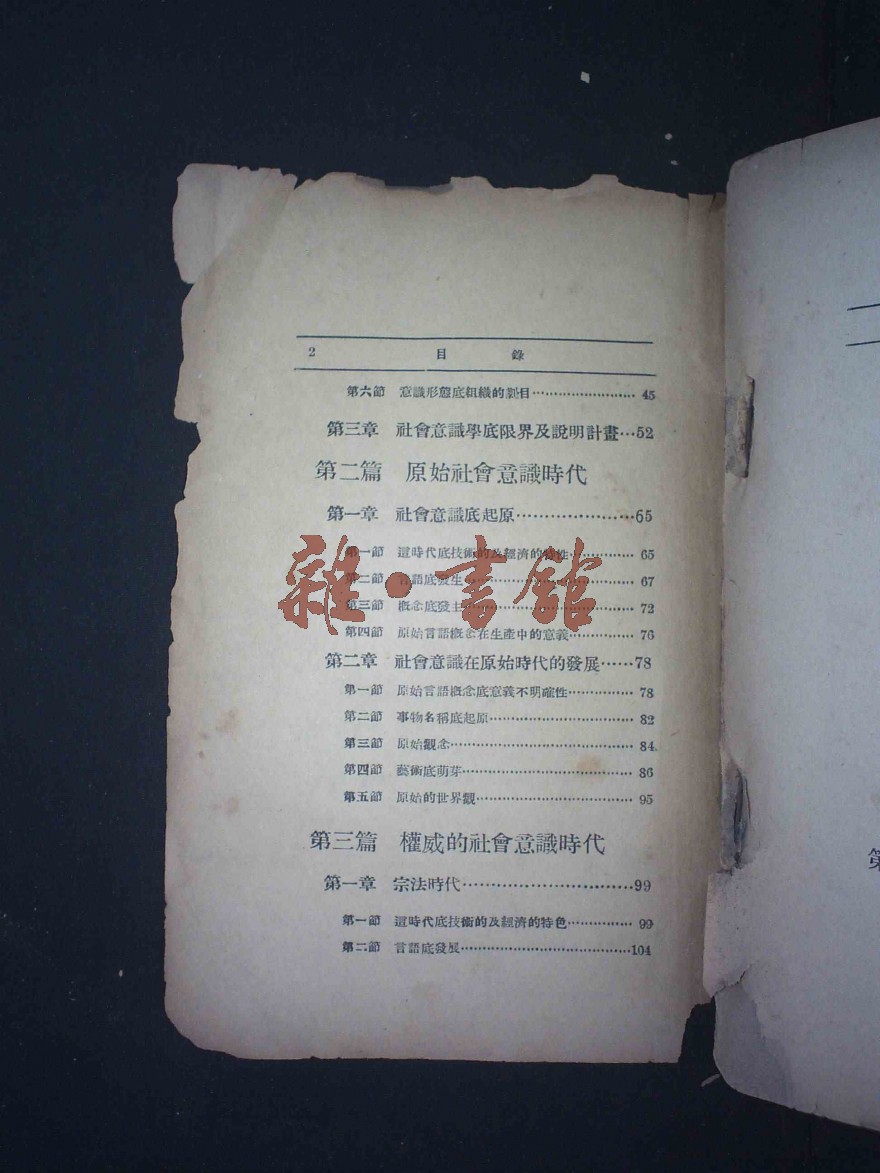 2 目錄
第六節 意識形態底組織的題目……45
第三章 社會意識學底限界及說明計畫…52
第二篇 原始社會意識時代
第一章 社會意識底起原……65
第一節 這時代底技術的及經濟的特性……65
第二節 言語底發生……67
第三節 概念底發生……72
第四節 原始言語概念在生產中的意義……76
第二章 社會意識在原始時代的發展……78
第一節 原始言語概念底意義不明確性……78
第二節 事物名稱底起原……82
第三節 原始觀念……84
第四節 藝術底萌芽……86
第五節 原始的世界觀……95
第三篇 權威的社會意識時代
第一章 宗法時代……99
第一節 這時代底技術的及經濟的特色……99
第二節 言語底發展……104
雜·書館
第